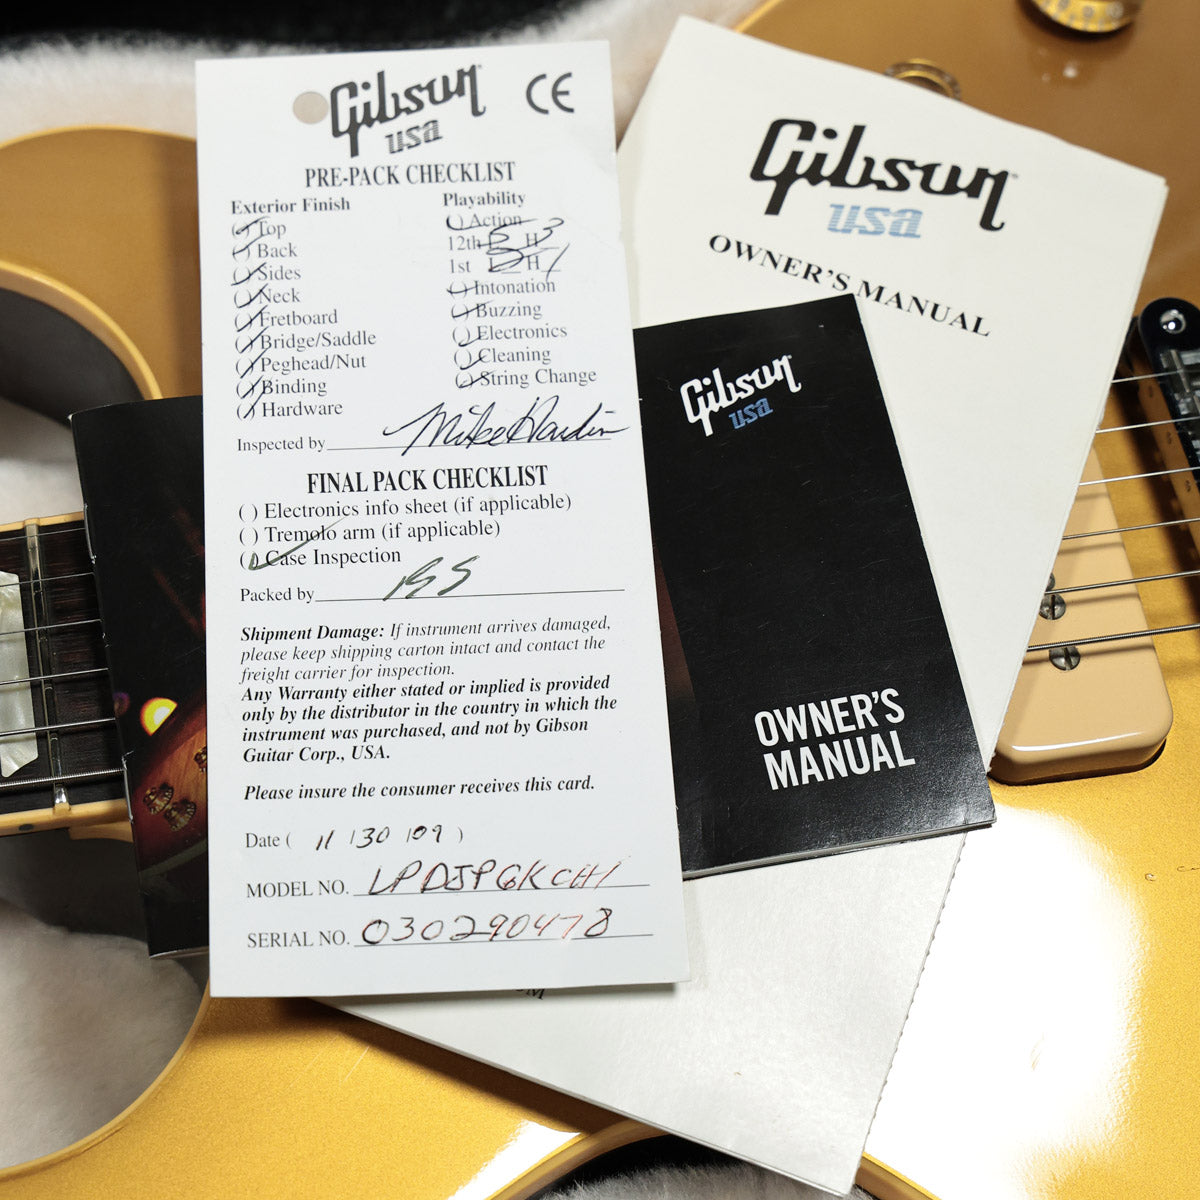 Gibson
usa
CE
PRE-PACK CHECKLIST
Exterior Finish
(✓) Top
(✓) Back
(✓) Sides
(✓) Neck
(✓) Fretboard
(✓) Bridge/Saddle
(✓) Peghead/Nut
(✓) Binding
(✓) Hardware
Playability
(✓) Action
12th B 5 H 3
1st H 1
(✓) Intonation
(✓) Buzzing
( ) Electronics
(✓) Cleaning
(✓) String Change
Inspected by Mike Hardin
FINAL PACK CHECKLIST
( ) Electronics info sheet (if applicable)
( ) Tremolo arm (if applicable)
(✓) Case Inspection
Packed by
Shipment Damage: If instrument arrives damaged,
please keep shipping carton intact and contact the
freight carrier for inspection.
Any Warranty either stated or implied is provided
only by the distributor in the country in which the
instrument was purchased, and not by Gibson
Guitar Corp., USA.
Please insure the consumer receives this card.
Date ( 11 / 30 / 09 )
MODEL NO. LPDJPGKCH1
SERIAL NO. 030290478
Gibson
usa
OWNER'S MANUAL
Gibson
usa
OWNER'S
MANUAL